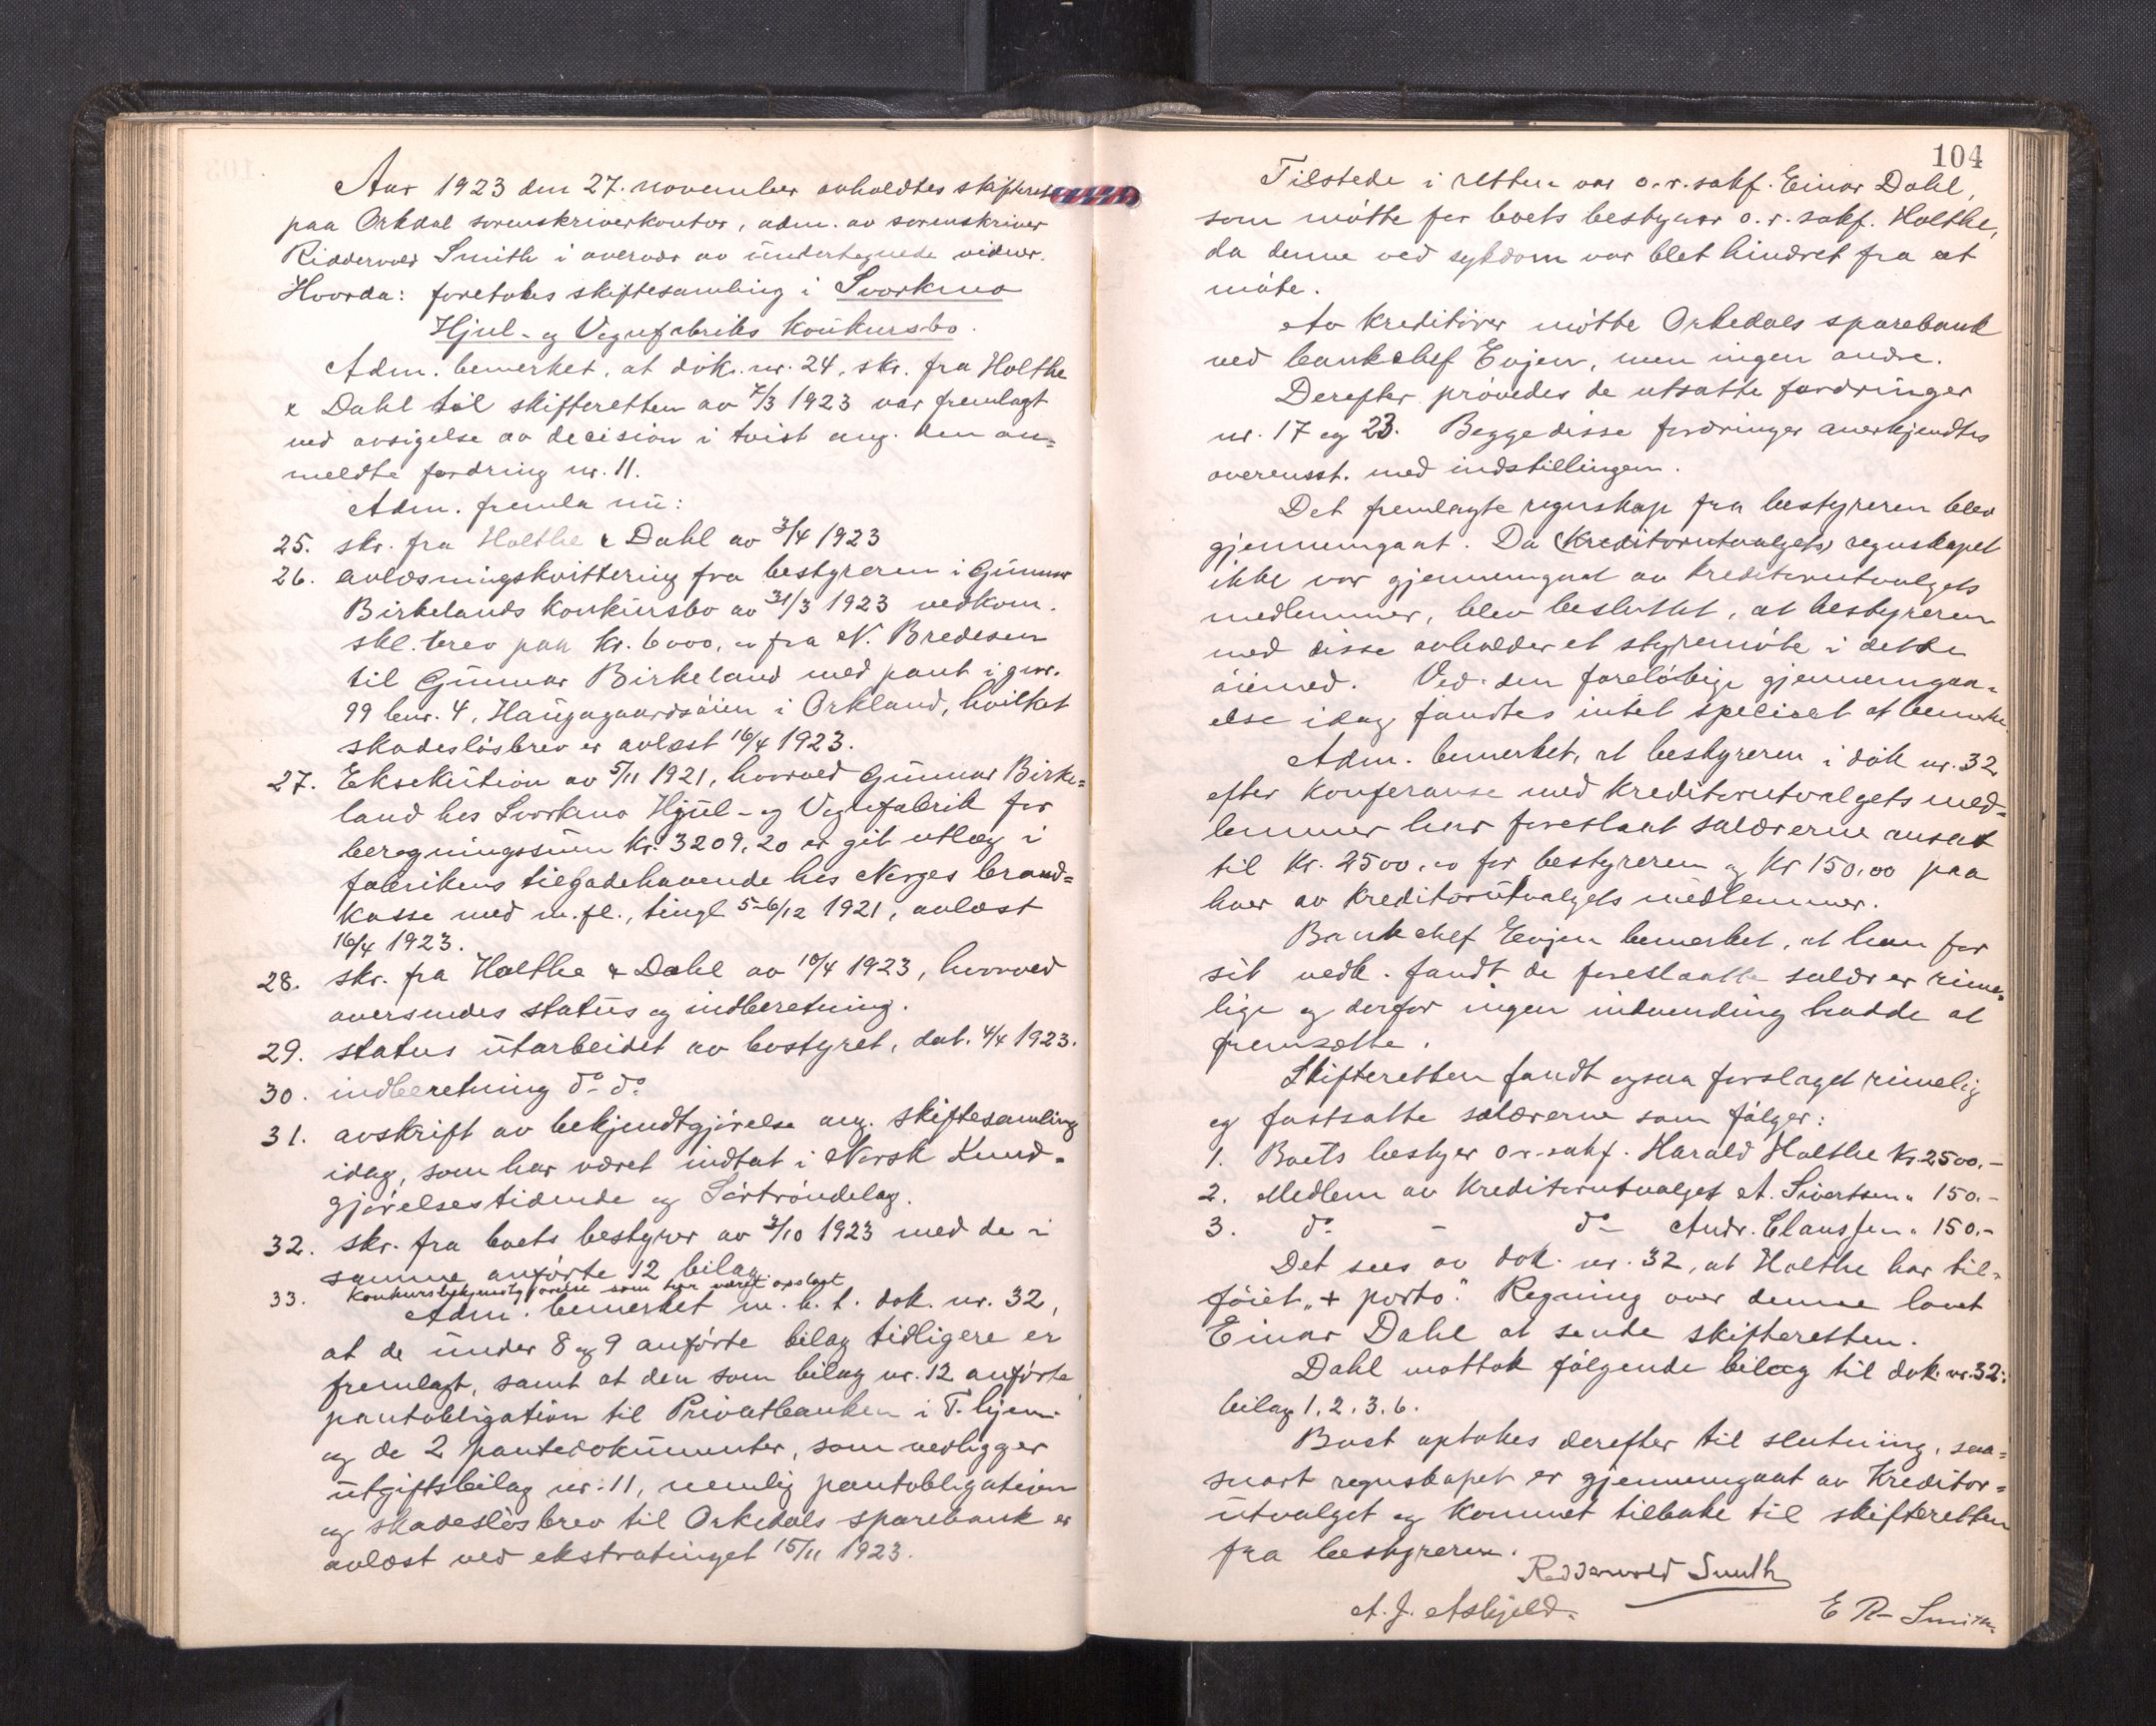 Aar 1923 den 27. november avholdtes skifteret
paa Orkdal sorenskriverkontor, adm. av sorenskriver
Riddervold Smith i overvær av undertegnede vidner.
Hvorda: foretokes skiftesamling i Svorkmo
Hjul- og Vognfabriks konkursbo.
Adm. bemerket, at dok. nr. 24, skr. fra Holthe
& Dahl til skifteretten av 7/3 1923 var fremlagt
ved avsigelse av decision i tvist ang. den an=
meldte fordring nr. 11.
Adm. fremla nu:
25. skr. fra Holthe & Dahl av 3/4 1923
26. avløsningskvittering fra bestyreren i Gunnar
Birkelands konkursbo av 31/3 1923 vedkom.
skl. brev paa kr. 6000,00 fra N. Bredesen
til Gunnar Birkeland med pant i gnr.
99 bnr. 4, Haugagaardsøien i Orkland, hvilket
skadesløsbrev er avlæst 16/4 1923.
27. Eksekution av 5/11 1921, hvorved Gunnar Birke=
land hos Svorkmo Hjul- og Vognfabrik for
beregningssum kr. 3209,20 er git utlæg i
fabrikens tilgodehavende hos Norges brand=
kasse med m. fl., tingl 5-6/12 1921, avlæst
16/4 1923.
28. skr. fra Holthe & Dahl av 10/4 1923, hvorved
oversendes status og indberetning.
29. status utarbeidet av bostyret, dat. 4/4 1923.
30. indberetning do do
31. avskrift av bekjendtgjørelse ang. skiftesamling
idag, som har været indtat i Norsk Kund-
gjørelsestidende og Sørtrøndelag.
32. skr. fra boets bestyrer av 3/10 1923 med de i
samme anførte 12 bilag
33. Konkursbekjendtgjørelse som har været opslaat
Adm. bemerket m. h. t. dok. nr. 32,
at de under 8 og 9 anførte bilag tidligere er
fremlagt, samt at den som bilag nr. 12 anførte
pantobligation til Privatbanken i T.hjem
og de 2 pantedokumenter, som vedligger
utgiftsbilag nr. 11, nemlig pantobligation
og skadesløsbrev til Orkedals sparebank er
avlæst ved ekstratinget 15/11 1923.
104
Tilstede i retten var o.r.sakf. Einar Dahl,
som møtte for boets bestyrer o.r. sakf. Holthe,
da denne ved sykdom var blet hindret fra at
møte.
Av kreditorer møtte Orkedals sparebank
ved bankchef Evjen, men ingen andre.
Derefter prøvedes de utsatte fordringer
nr. 17 og 23. Begge disse fordringer anerkjendtes
overensst. med indstillingen.
Det fremlagte regnskap fra bestyreren blev
gjennemgaat. Da (Kreditorutvalgets) regnskapet
ikke var gjennemgaat av kreditorutvalgets
medlemmer, blev besluttet, at bestyreren
med disse avholder et styremøte i dette
øiemed. Ved den foreløbige gjennemgaa-
else idag fandtes intet specielt at bemerke
Adm. bemerket, at bestyreren i dok nr. 32
efter konferanse med kreditorutvalgets med=
lemmer har foreslaat salærerne ansat
til kr. 2500,00 for bestyreren og kr 150,00 paa
hver av kreditorutvalgets medlemmer.
Bankchef Evjen bemerket, at han for
sit vedk. fandt de foreslaatte salærer rime-
lige og derfor ingen indvending hadde at
fremsætte.
Skifteretten fandt ogsaa forslaget rimelig
og fastsatte salærerne som følger:
1. Boets bestyrer o.r.sakf. Harald Holthe kr. 2500.-
2. Medlem av kreditorutvalget A. Sivertsen " 150.-
3. do - do - Andr. Claussen " 150.-
Det sees av dok. nr. 32, at Holthe har til-
føiet "+ porto". Regning over denne lovet
Einar Dahl at sende skifteretten.
Dahl mottok følgende bilag til dok. nr. 32:
bilag 1. 2. 3. 6.
Boet optokes derefter til slutning, saa=
snart regnskapet er gjennemgaat av Kreditor=
utvalget og kommet tilbake til skifteretten
fra bestyreren.
Riddervold Smith
A. J. Askjeld.
E R Smith